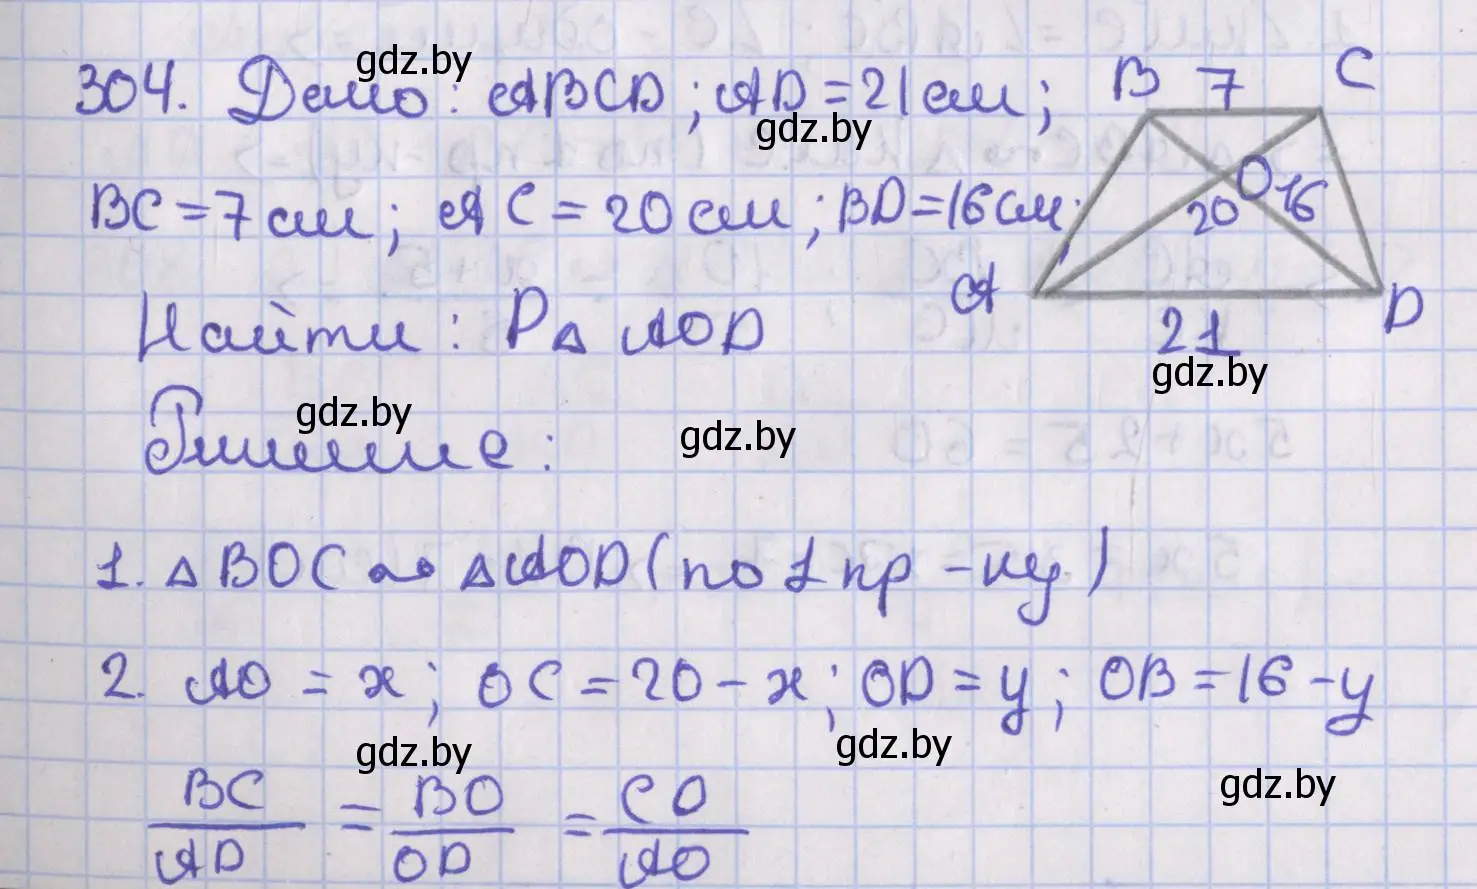 304. Дано: ABCD; AD = 21 см;
BC = 7 см; AC = 20 см; BD = 16 см.
Найти: P△ AOD
Решение:
1. △ BOC ∾ △ AOD (по 1 пр-ку)
2. AO = x; OC = 20 - x; OD = y; OB = 16 - y
BC/AD = BO/OD = CO/AO
B 7 C
O
20 16
A D
21
gdz.by
gdz.by
gdz.by
gdz.by
gdz.by
gdz.by
gdz.by
gdz.by